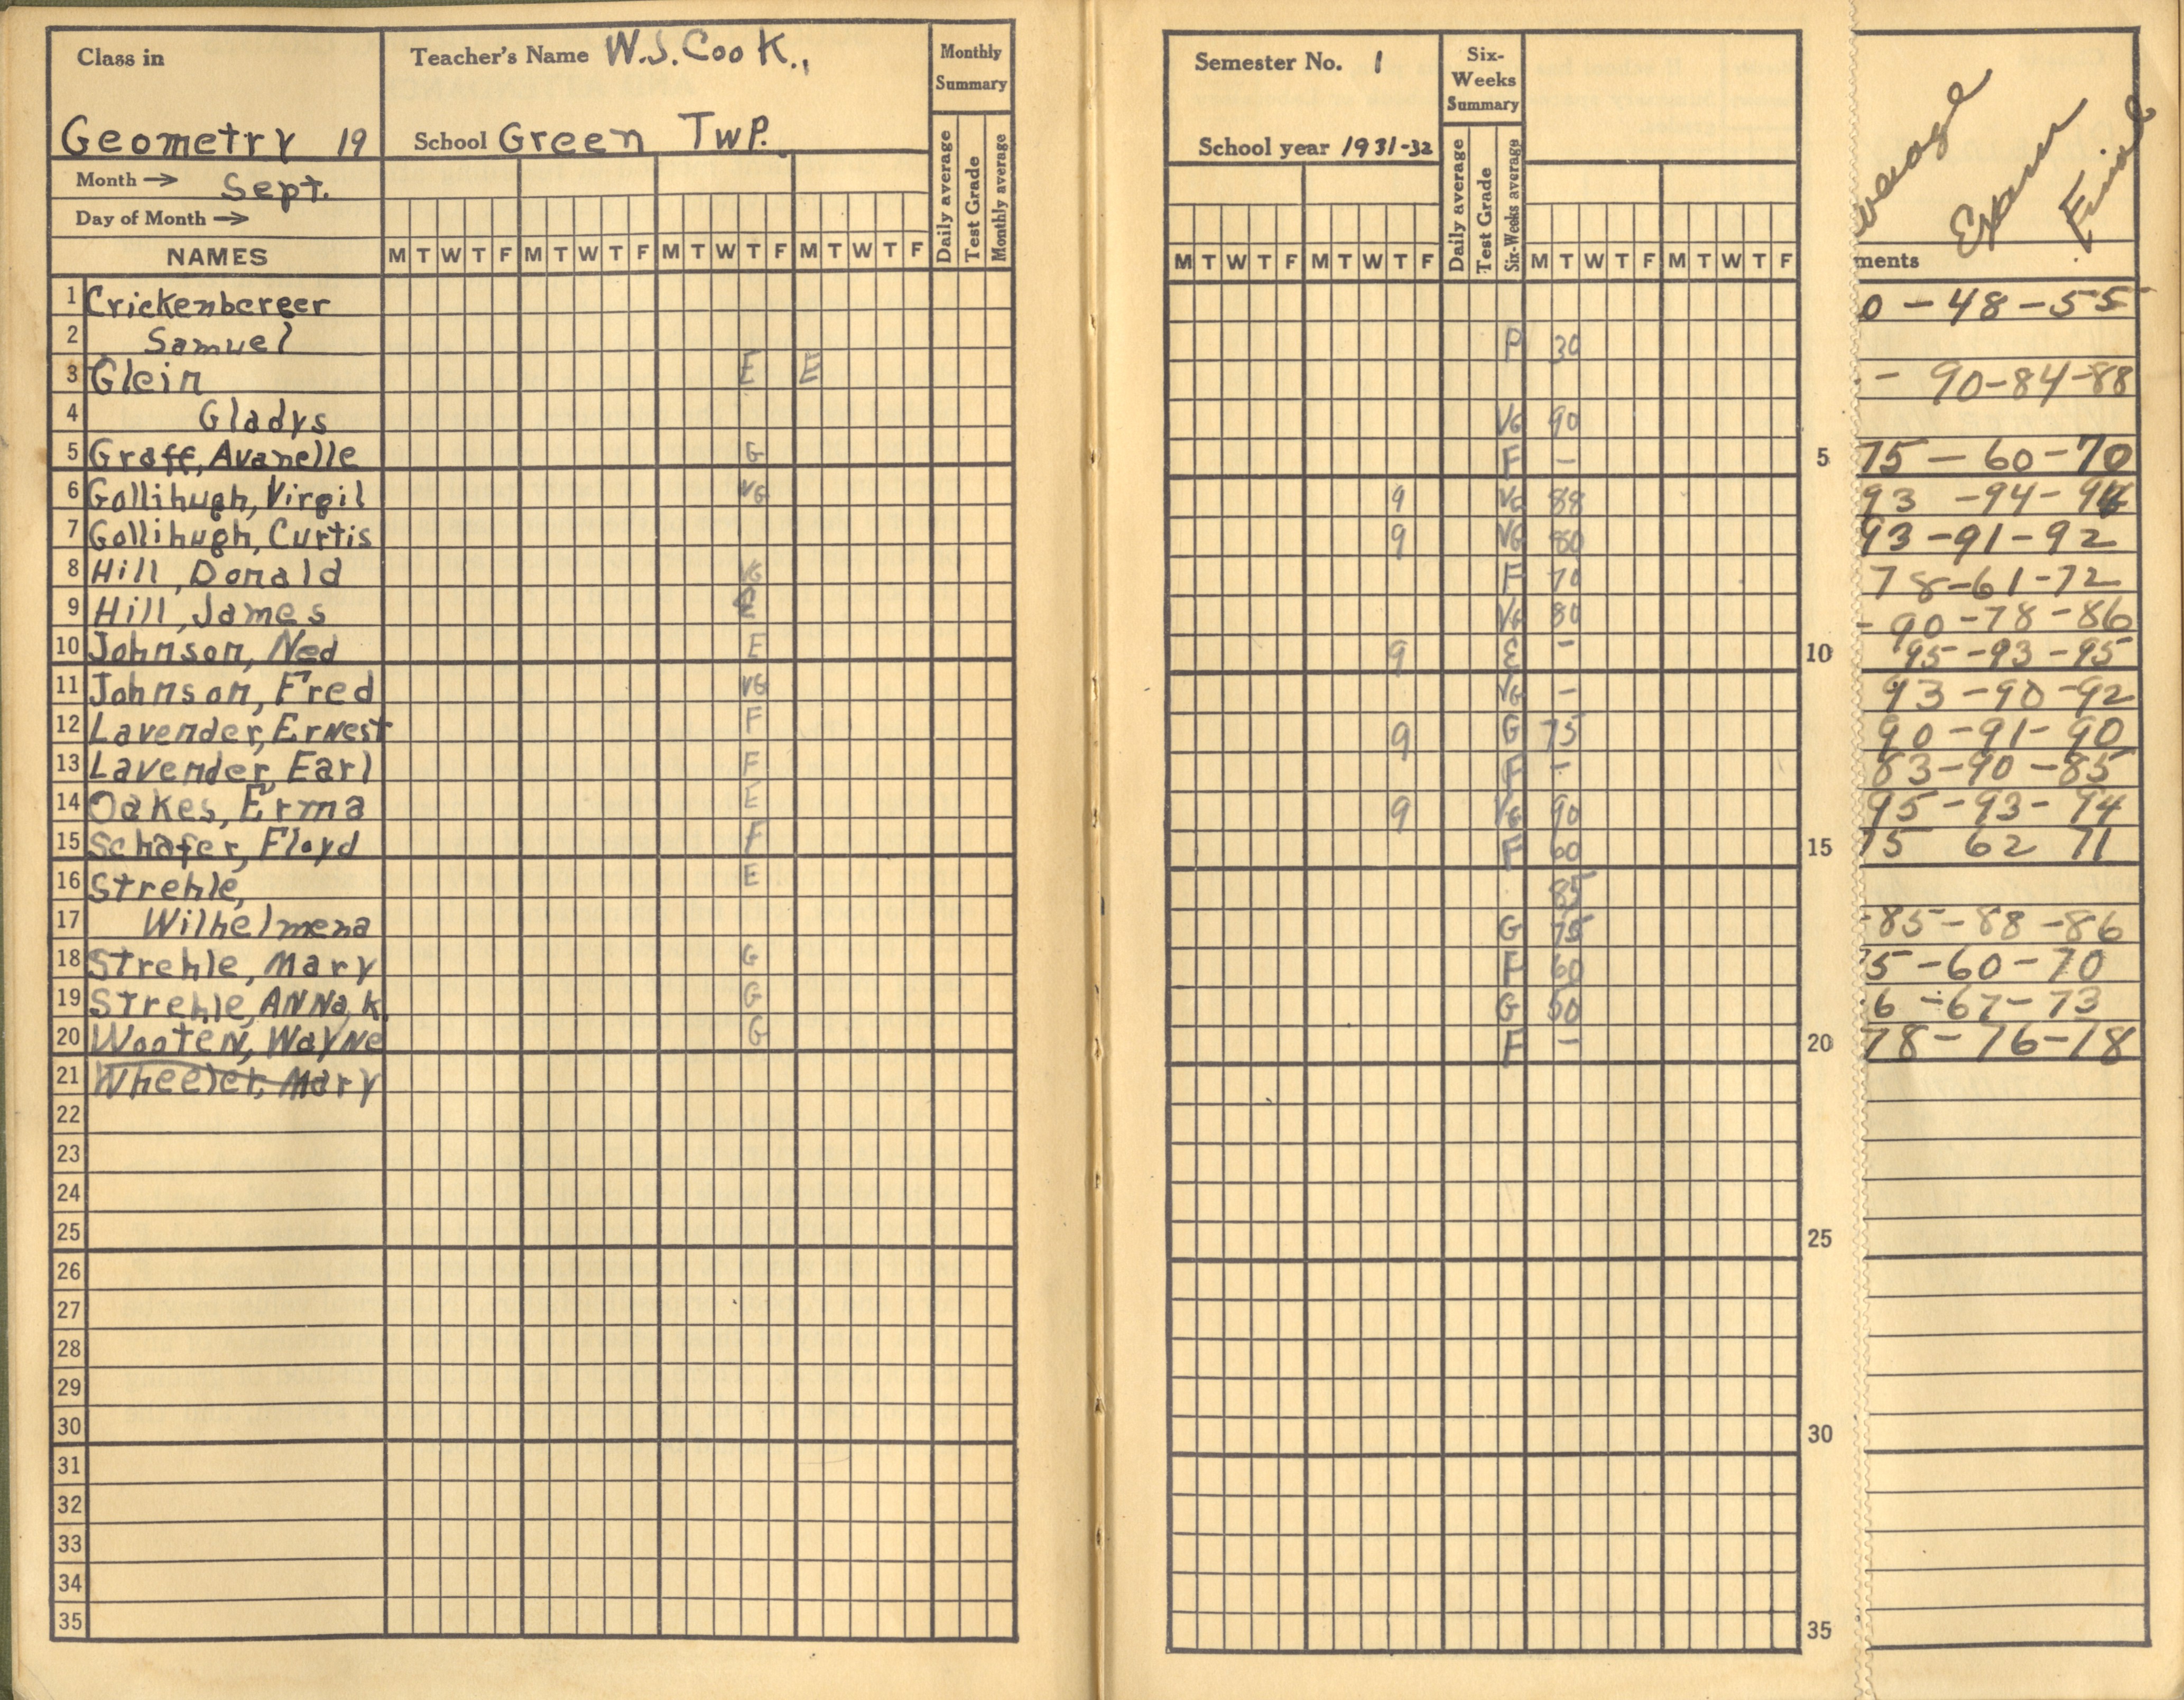 Class in
Geometry 19
Teacher's Name W.S. Cook.,
School Green Twp.
Monthly Summary
Daily average
Test Grade
Monthly average
Month → Sept.
Day of Month →
NAMES M T W T F M T W T F M T W T F M T W T F
Semester No. 1
School year 1931-32
Six-Weeks Summary
Daily average
Test Grade
Six-Weeks average
M T W T F M T W T F M T W T F M T W T F
ments Exam Final
1 Crickenberger 0 - 48 - 55
2 Samuel P 30
3 Glein E E - 90-84-88
4 Gladys VG 90
5 Graff, Avanelle G F - 5 75 - 60 - 70
6 Gollihugh, Virgil VG 9 VG 88 93 - 94 -
7 Gollihugh, Curtis 9 VG 80 93 - 91 - 92
8 Hill, Donald VG F 70 78-61-72
9 Hill, James VG 80 - 90 - 78 - 86
10 Johnson, Ned E 9 E - 10 95 - 93 - 95
11 Johnson, Fred VG VG - 93 - 90 - 92
12 Lavender, Ernest F 9 G 75 90 - 91 - 90
13 Lavender, Earl F F - 83 - 90 - 85
14 Oakes, Erma E 9 VG 90 95 - 93 - 94
15 Schafer, Floyd F F 60 15 75 62 71
16 Strehle, E 85
17 Wilhelmena G 75 - 85 - 88 - 86
18 Strehle, Mary G F 60 5 - 60 - 70
19 Strehle, Anna, K. G G 50 6 - 67 - 73
20 Wooten, Wayne G F - 20 78 - 76 - 78
21 Wheeler, Mary
22
23
24
25 25
26
27
28
29
30 30
31
32
33
34
35 35